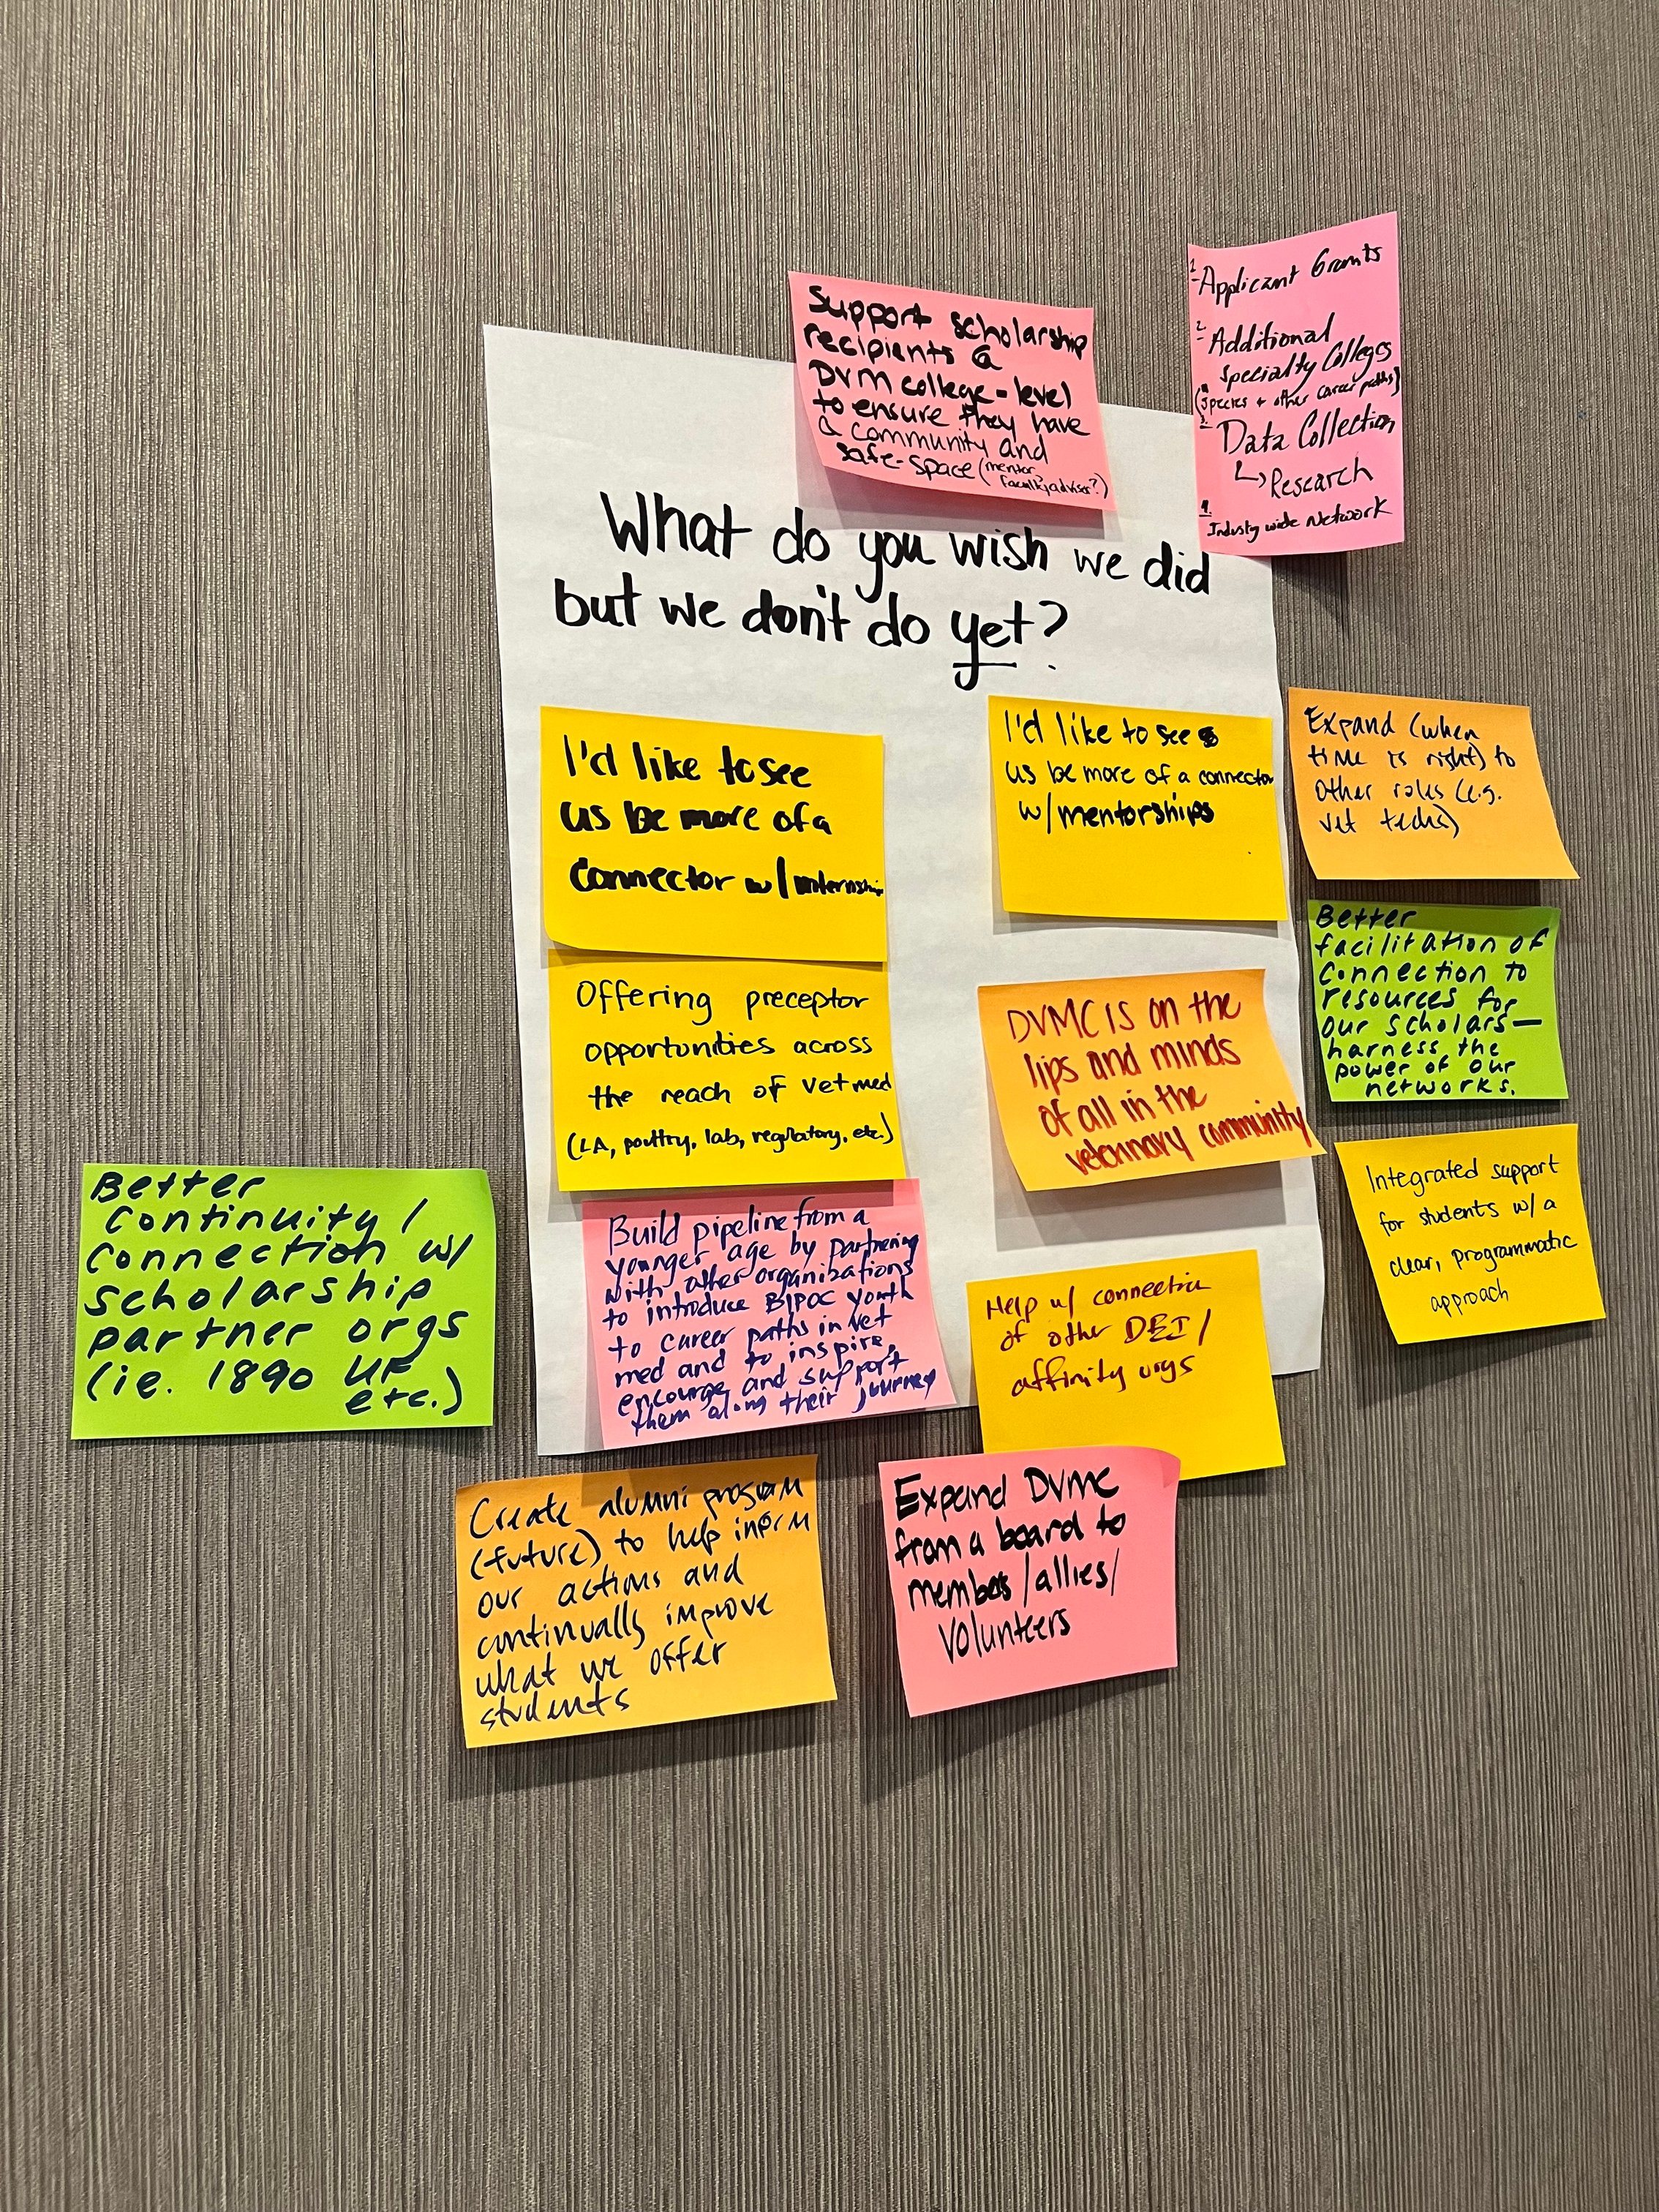 Support scholarship
recipients @
DVM college-level
to ensure they have
a community and
safe-space (mentor,
faculty adviser?)
1. Applicant Grants
2. Additional
Specialty Colleges
(species + other career paths)
3. Data Collection
↳ Research
4. Industry wide Network
What do you wish we did
but we don't do yet?
I'd like to see
us be more of a
connector w/internships
I'd like to see
us be more of a connector
w/mentorships
Expand (when
time is right) to
other roles (e.g.
vet techs)
Offering preceptor
opportunities across
the reach of vet med
(LA, poultry, lab, regulatory, etc.)
DVMC IS on the
lips and minds
of all in the
veterinary community
Better
facilitation of
connection to
resources for
our scholars—
harness the
power of our
networks.
Better
continuity/
connection w/
scholarship
partner orgs
(ie. 1890 UF
etc.)
Build pipeline from a
younger age by partnering
with other organizations
to introduce BIPOC youth
to career paths in vet
med and to inspire,
encourage and support
them along their journey
Help w/ connection
of other DEI/
affinity orgs
Integrated support
for students w/a
clear, programmatic
approach
Create alumni program
(future) to help inform
our actions and
continually improve
what we offer
students
Expand DVMC
from a board to
members/allies/
volunteers